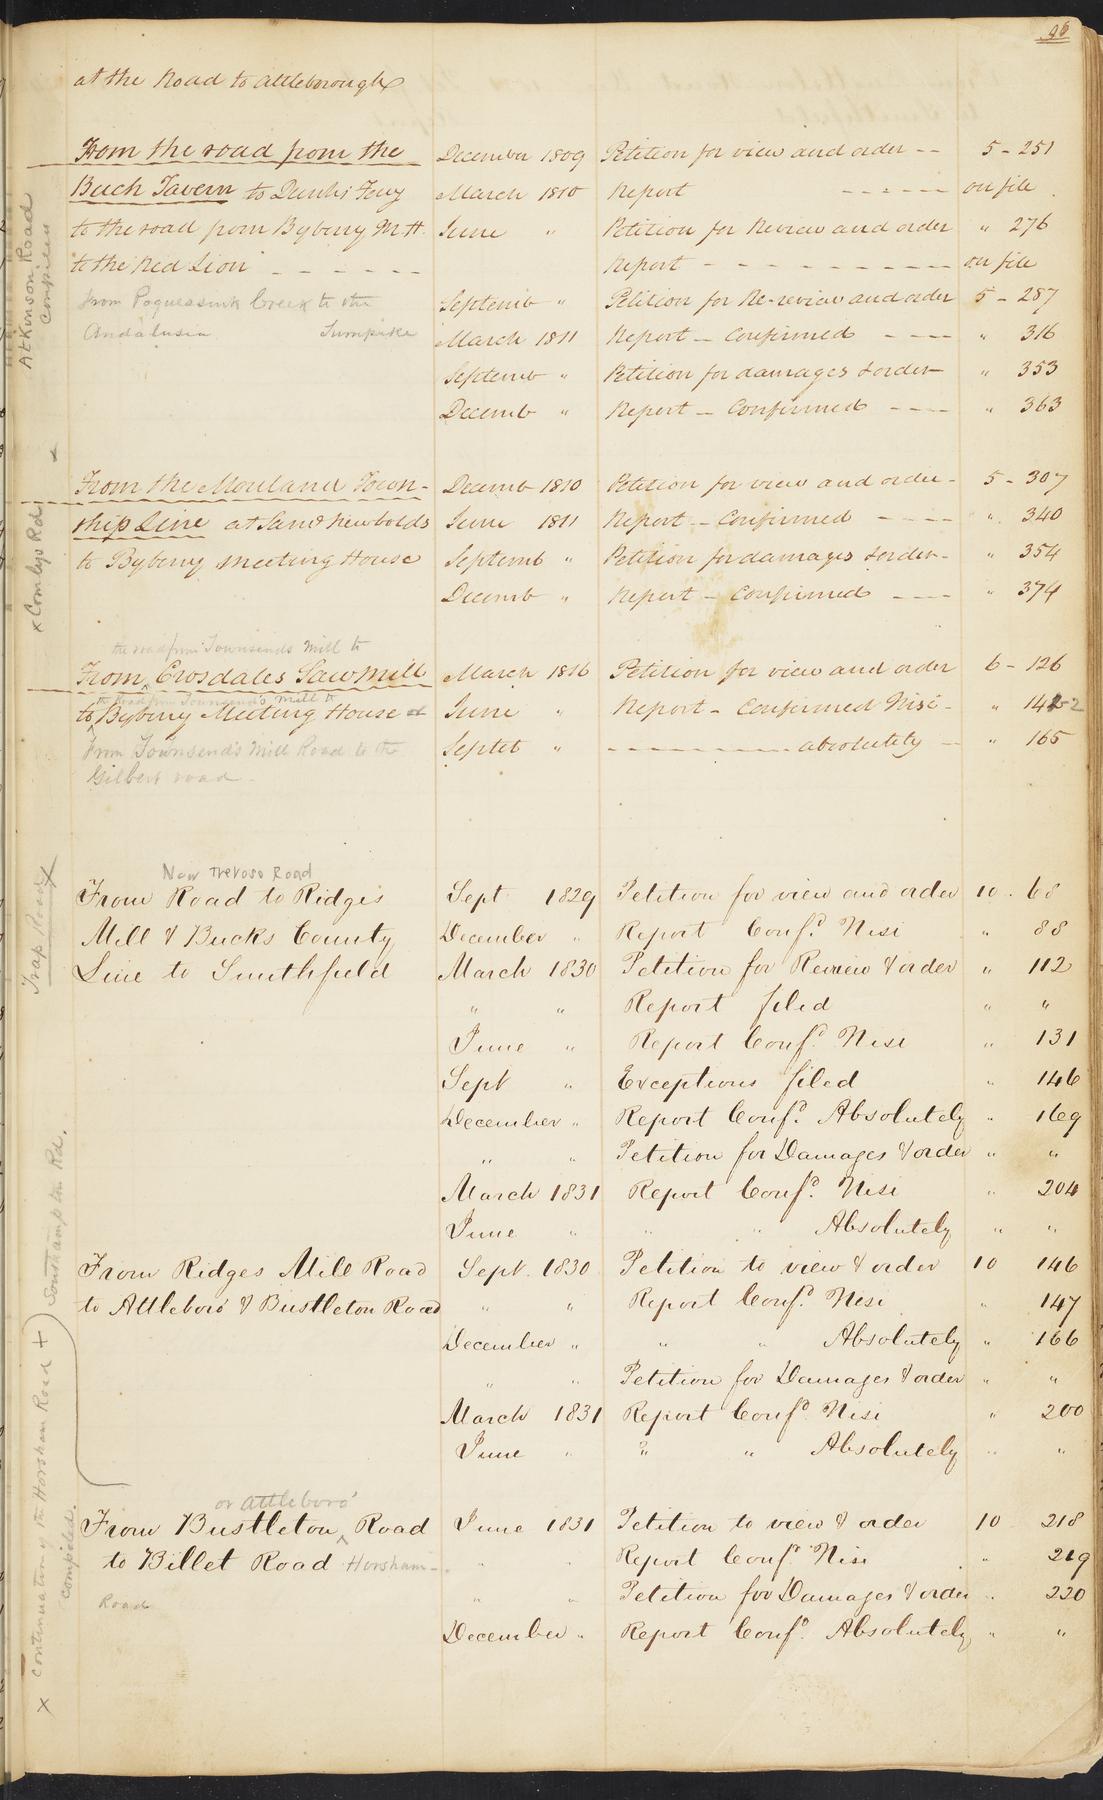 96
at the Road to Attleborough
From the road from the December 1809 Petition for view and order -- 5 - 251
Buck Tavern to Dunks Ferry March 1810 Report ------ on file
to the road from Byberry M.H. June " Petition for Review and order " 276
to the Red Lion ------ Report ---------- on file
from Poquessink Creek to the Septemb " Petition for Re-review and order 5 - 287
Andalusia Turnpike March 1811 Report - Confirmed ---- " 316
Septemb " Petition for damages & order - " 353
Decemb " Report - Confirmed ---- " 363
Atkinson Road
compiled
From the Moreland Town- Decemb 1810 Petition for view and order - 5 - 307
ship Line at Saml Newbolds June 1811 Report - Confirmed ---- " 340
to Byberry meeting House Septemb " Petition for damages & order - " 354
Decemb " Report - Confirmed ---- " 374
x Comlys Rd
the road from Townsends Mill to
From Crosdales Sawmill March 1816 Petition for view and order 6 - 126
the Road from Townsend's Mill to
to Byberry Meeting House June " Report - Confirmed Nisi - " 142
from Townsend's Mill Road to the Septet " ---------- absolutely - " 165
Gilbert road -
New Trevose Road
From Road to Ridges Sept 1829 Petition for view and order 10 - 68
Mill & Bucks County December " Report Confd. Nisi " 88
Line to Smithfield March 1830 Petition for Review & order " 112
" " Report filed " "
June " Report Confd. Nisi " 131
Sept " Exceptions filed " 146
December " Report Confd. Absolutely " 169
" " Petition for Damages & order " "
March 1831 Report Confd. Nisi " 204
June " " " Absolutely " "
Trap Road x
From Ridges Mill Road Sept. 1830 Petition to view & order 10 146
to Attleboro' & Bustleton Road " " Report Confd. Nisi " 147
December " " " Absolutely " 166
" " Petition for Damages & order " "
March 1831 Report Confd. Nisi " 200
June " " " Absolutely " "
Southampton Rd.
or Attleboro'
From Bustleton Road June 1831 Petition to view & order 10 218
to Billet Road Horsham - " " Report Confd. Nisi " 219
Road " " Petition for Damages & order " 220
December " Report Confd. Absolutely " "
x continuation of the Horsham Road +
compiled.